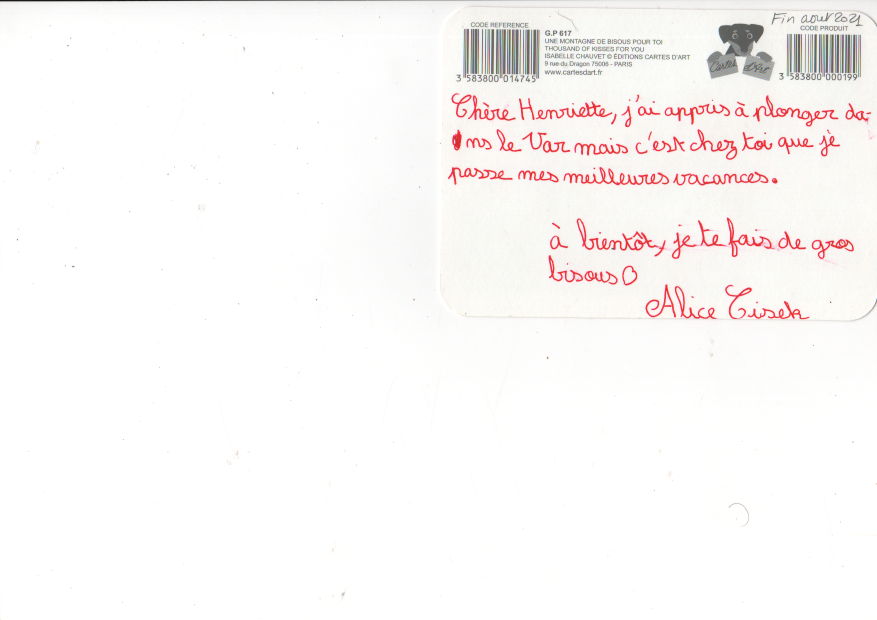 Fin aout 2021
CODE REFERENCE
3 583800 014745
G.P 617
UNE MONTAGNE DE BISOUS POUR TOI
THOUSAND OF KISSES FOR YOU
ISABELLE CHAUVET © ÉDITIONS CARTES D'ART
9 rue du Dragon 75006 - PARIS
www.cartesdart.fr
Cartes d'Art
CODE PRODUIT
3 583800 000199
Chère Henriette, j'ai appris à plonger da-
ns le Var mais c'est chez toi que je
passe mes meilleures vacances.
à bientôt, je te fais de gros
bisous
Alice Cisek